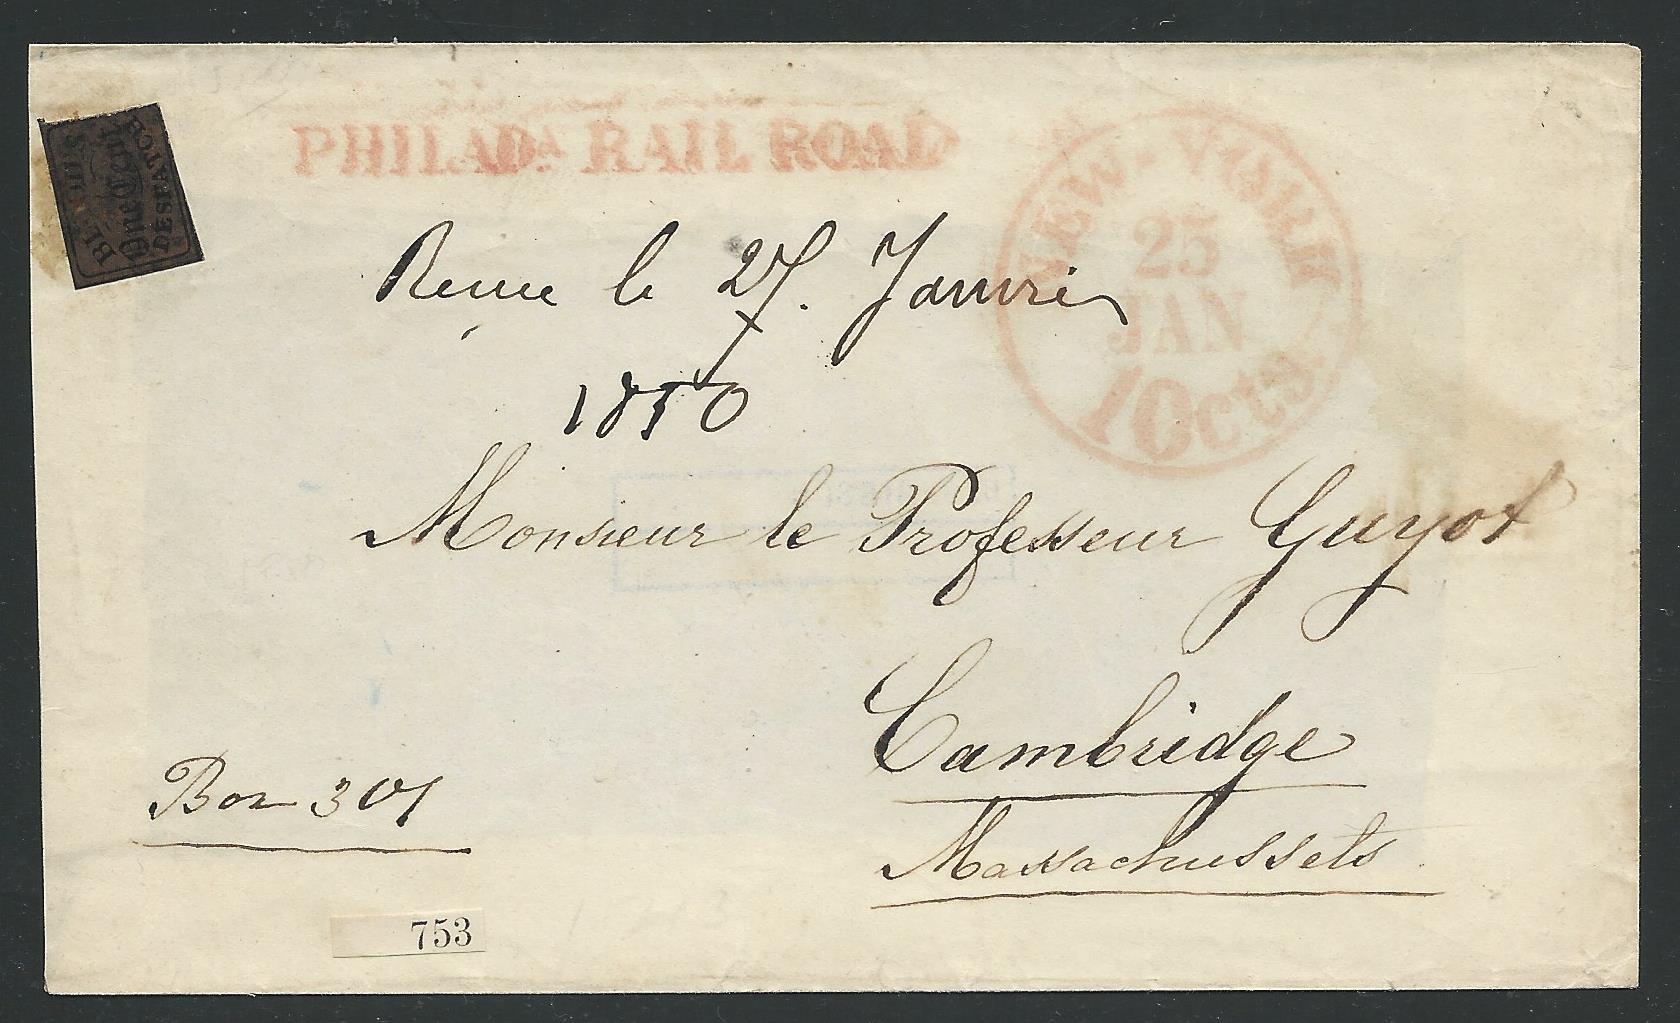 BLOOD'S
One Cent
DESPATCH
PHILADA RAIL ROAD
NEW-YORK
25
JAN
10cts.
le 27. Janvier
1850
Monsieur le Professeur Guyot
Cambridge
Massachussets
Box 301
753